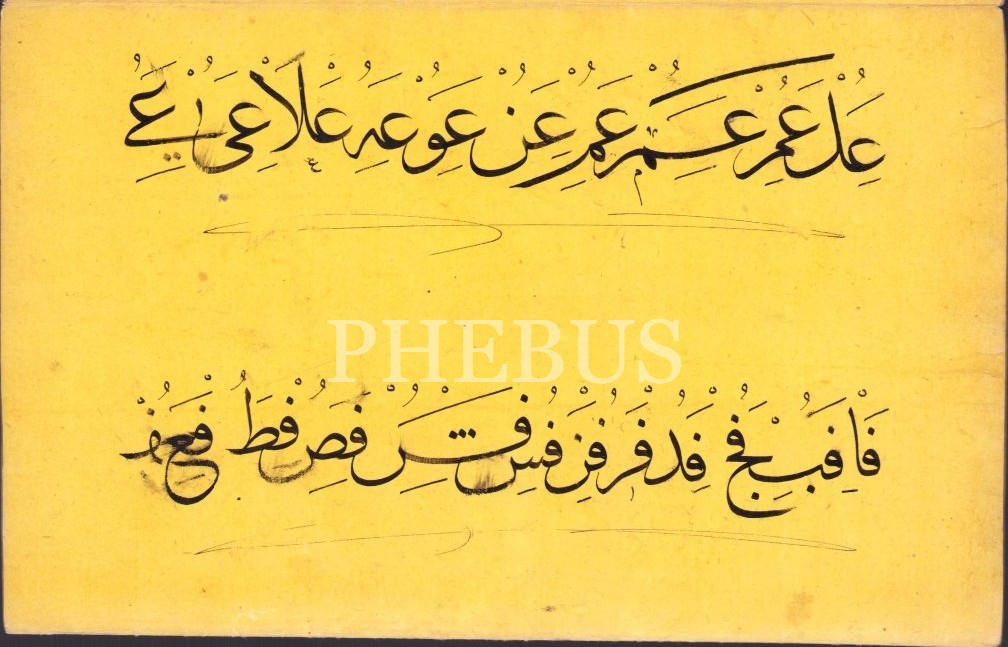 عل عم عم عن عو عه علا عى عے
PHEBUS
فا فب فج فد فر فر فس فس فص فط فع